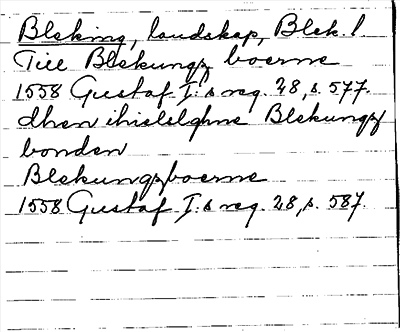 Bleking, landskap, Blek. l.
Till Blekungz boerne
1558 Gustaf I:s reg. 28, s. 577.
dhen ihielslgne Blekungz
bonden
Blekungzboerne
1558 Gustaf I:s reg. 28, s. 587.